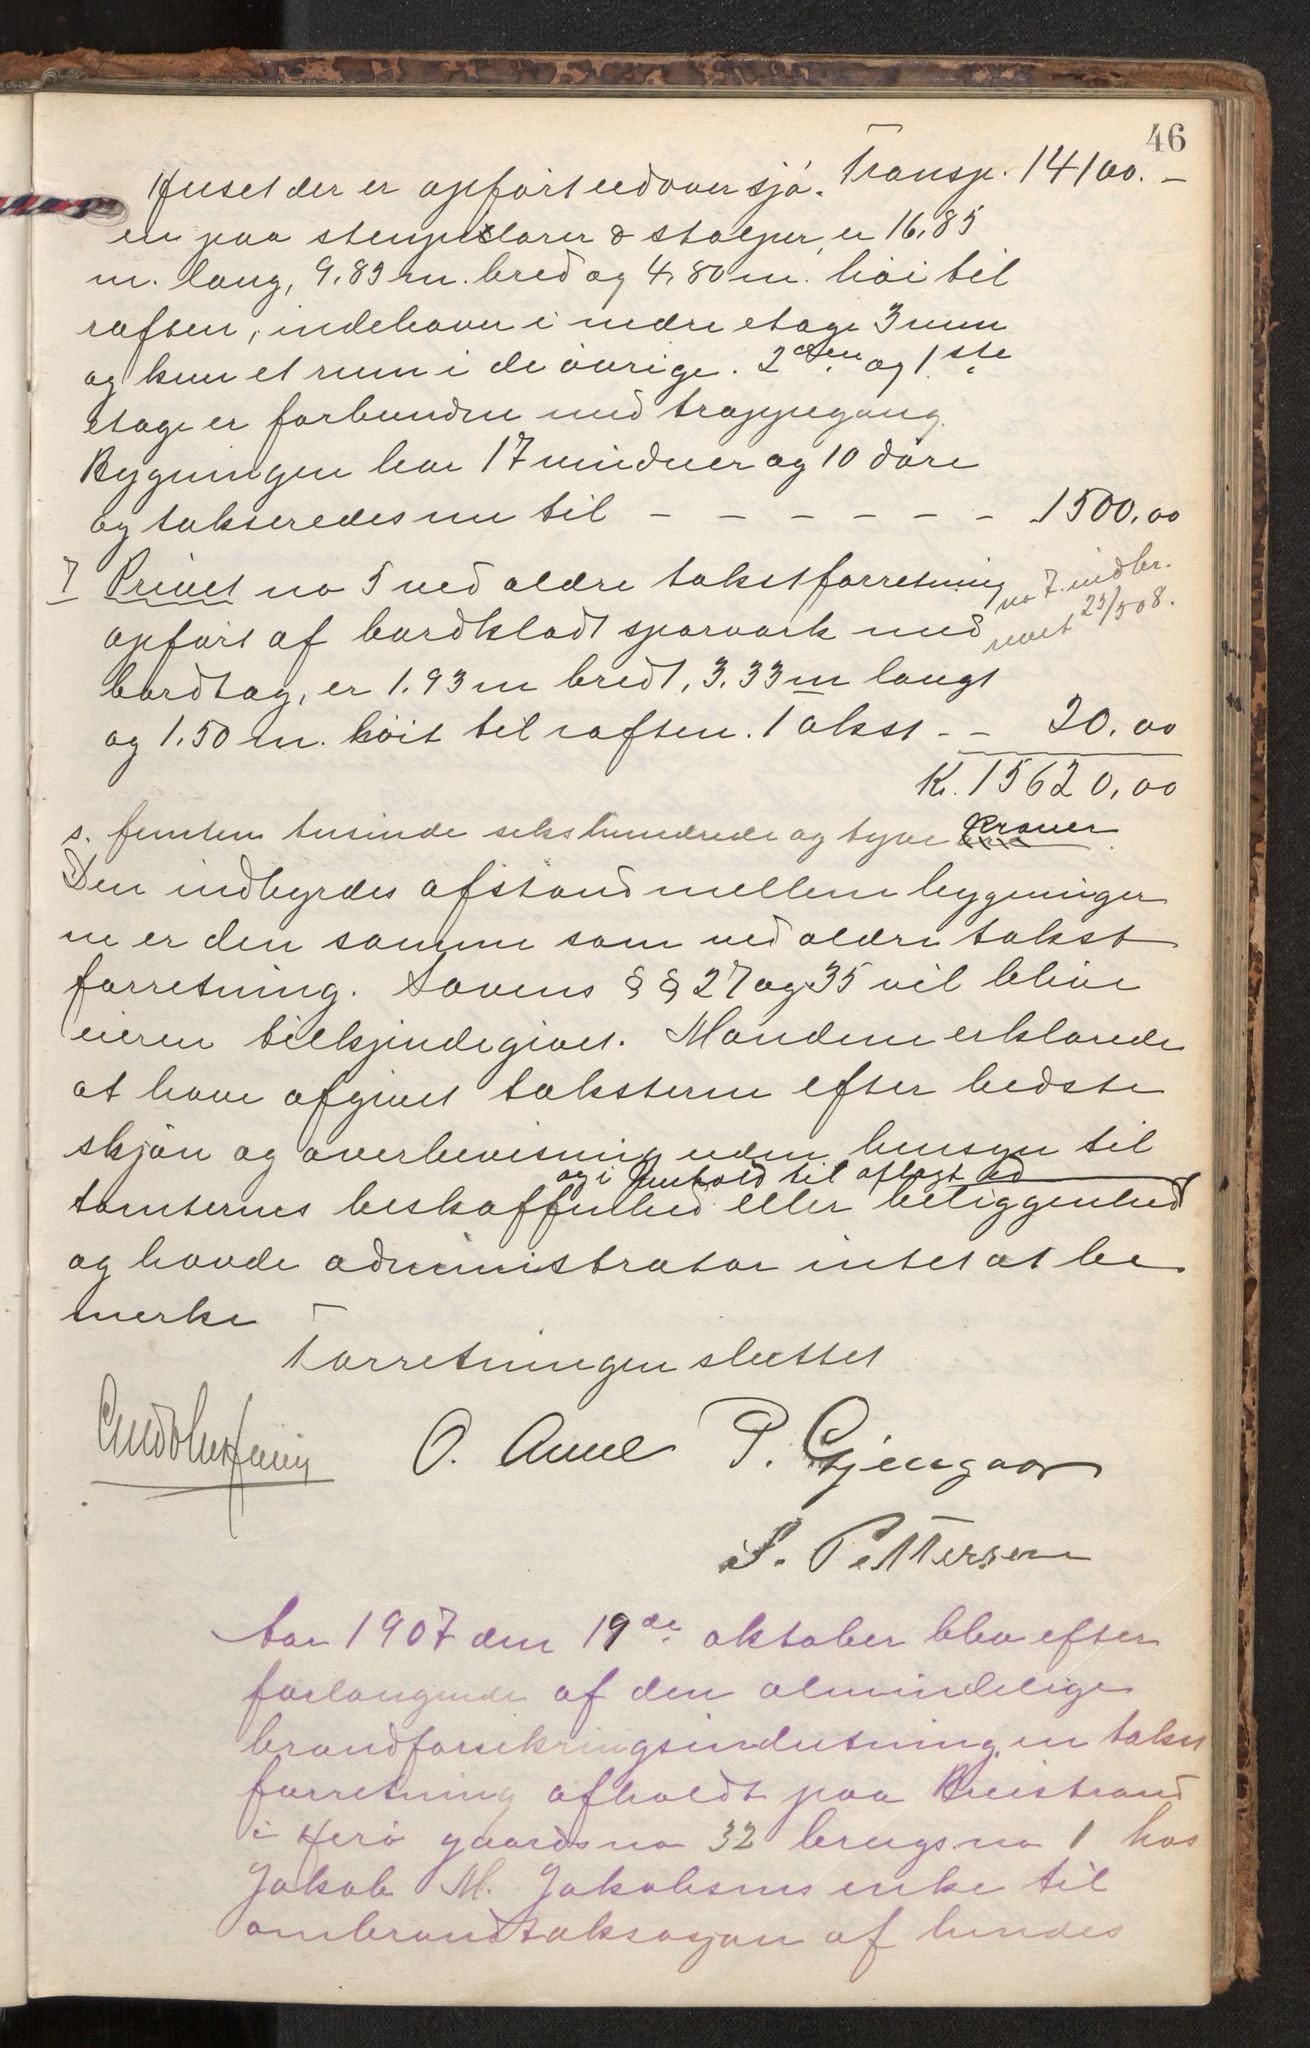 46
Huset der er opført udover sjö- Transp. 14100.-
en paa stenpilarer & stolper, er 16,85
m. lang, 9,83 m. bred og 4,80 m. høi til
raften, indehaver i nedre etage 3 rum
og kun et rum i de øvrige. 2den og 1ste
etage er forbunden med trappegang.
Bygningen har 17 vinduer og 10 döre
og takseredes nu til - - - - - - - 1500,00
7 Privet no 5 ved ældre takstforretning
no 7. indbr.
revet 23/5 08.
opført af bordklædt sparværk med
bordtag, er 1.93 m bredt, 3.33 m langt
og 1.50 m. høit til raften. Takst - - 20,00
Kr. 15620,00
s. femten tusinde sekshundrede og tyve kroner
Den indbyrdes afstand mellem bygninger
ne er den samme som ved ældre takst
forretning. Lovens § § 27 og 35 vil blive
eieren tilkjendegivet. Mændene erklærede
at have afgivet taksterne efter bedste
skjön og overbevisning uden hensyn til
og i henhold til aflagt ed
tomternes beskaffenhed eller beliggenhed
og havde administrator intet at be
merke
Forretningen sluttet
O. Aune P. Gjengaar
S. Pettersen
Aar 1907 den 19de oktober blev efter
forlangende af den almindelige
brandforsikringsindretning en takst
forretning afholdt paa Breistrand
i Herö gaardsno 32 brugsno 1 hos
Jakob M. Jakobsens enke til
ombrandtaksasjon af hendes